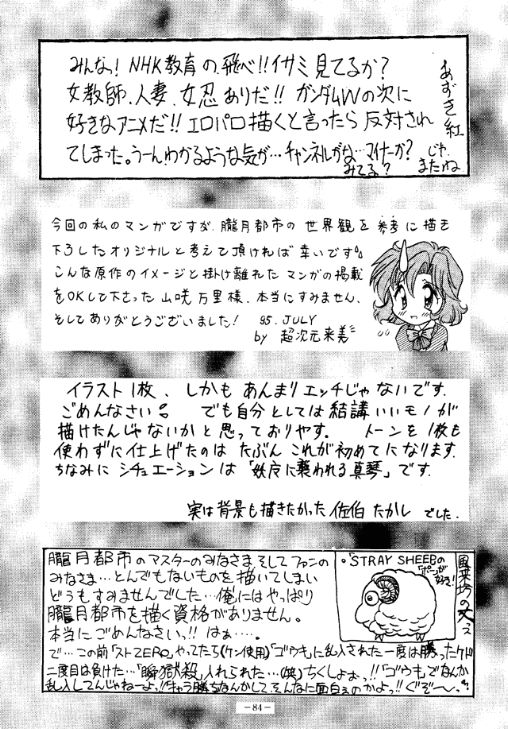 みんな! NHK教育の、飛べ!!イサミ見てるか?
女教師、人妻、女忍ありだ!! ガンダムWの次に
好きなアニメだ!! エロパロ描くと言ったら 反対され
てしまった。うーんわかるような気が…チャンネルがな…マイナーか?
みてる?
あずき紅
じゃ、
またね
今回の私のマンガですが、朧月都市の世界観を参考に描き
下ろしたオリジナルと考えて頂ければ幸いです。
こんな原作のイメージと掛け離れたマンガの掲載
をOKして下さった山咲万里様、本当にすみません、
そしてありがとうございました!
95. JULY
by 超次元来美
イラスト1枚、しかもあんまりエッチじゃないです。
ごめんなさい。 でも自分としては結講いいモノが
描けたんじゃないかと思っておりやす。 トーンを1枚も
使わずに仕上げたのは たぶん これが初めてになります。
ちなみに シチュエーションは「妖に襲われる真琴」です.
実は背景も描きたかった 佐伯 たかし でした.
朧月都市のマスターのみなさま そして ファンの
みなさま…とんでもないものを描いてしまい
どうもすみませんでした…俺にはやっぱり
朧月都市を描く資格がありません。
本当にごめんなさい。!! はぁ….
で…この前「ストZERO」やってたら(ケン使用)「ゴウキ」に乱入された一度は勝ったケド
二度目は負けた…「瞬獄殺」入れられた…(哭)ちくしょぉっ!!「ゴウキ」でなんか
乱入してんじゃねーよ!!キャラ勝ちなんかしてそんなに面白ぇのかよっ!!ぐぞ〜っ.
"STRAY SHEEPの
「ポー」が
好き!
風来坊の
-84-